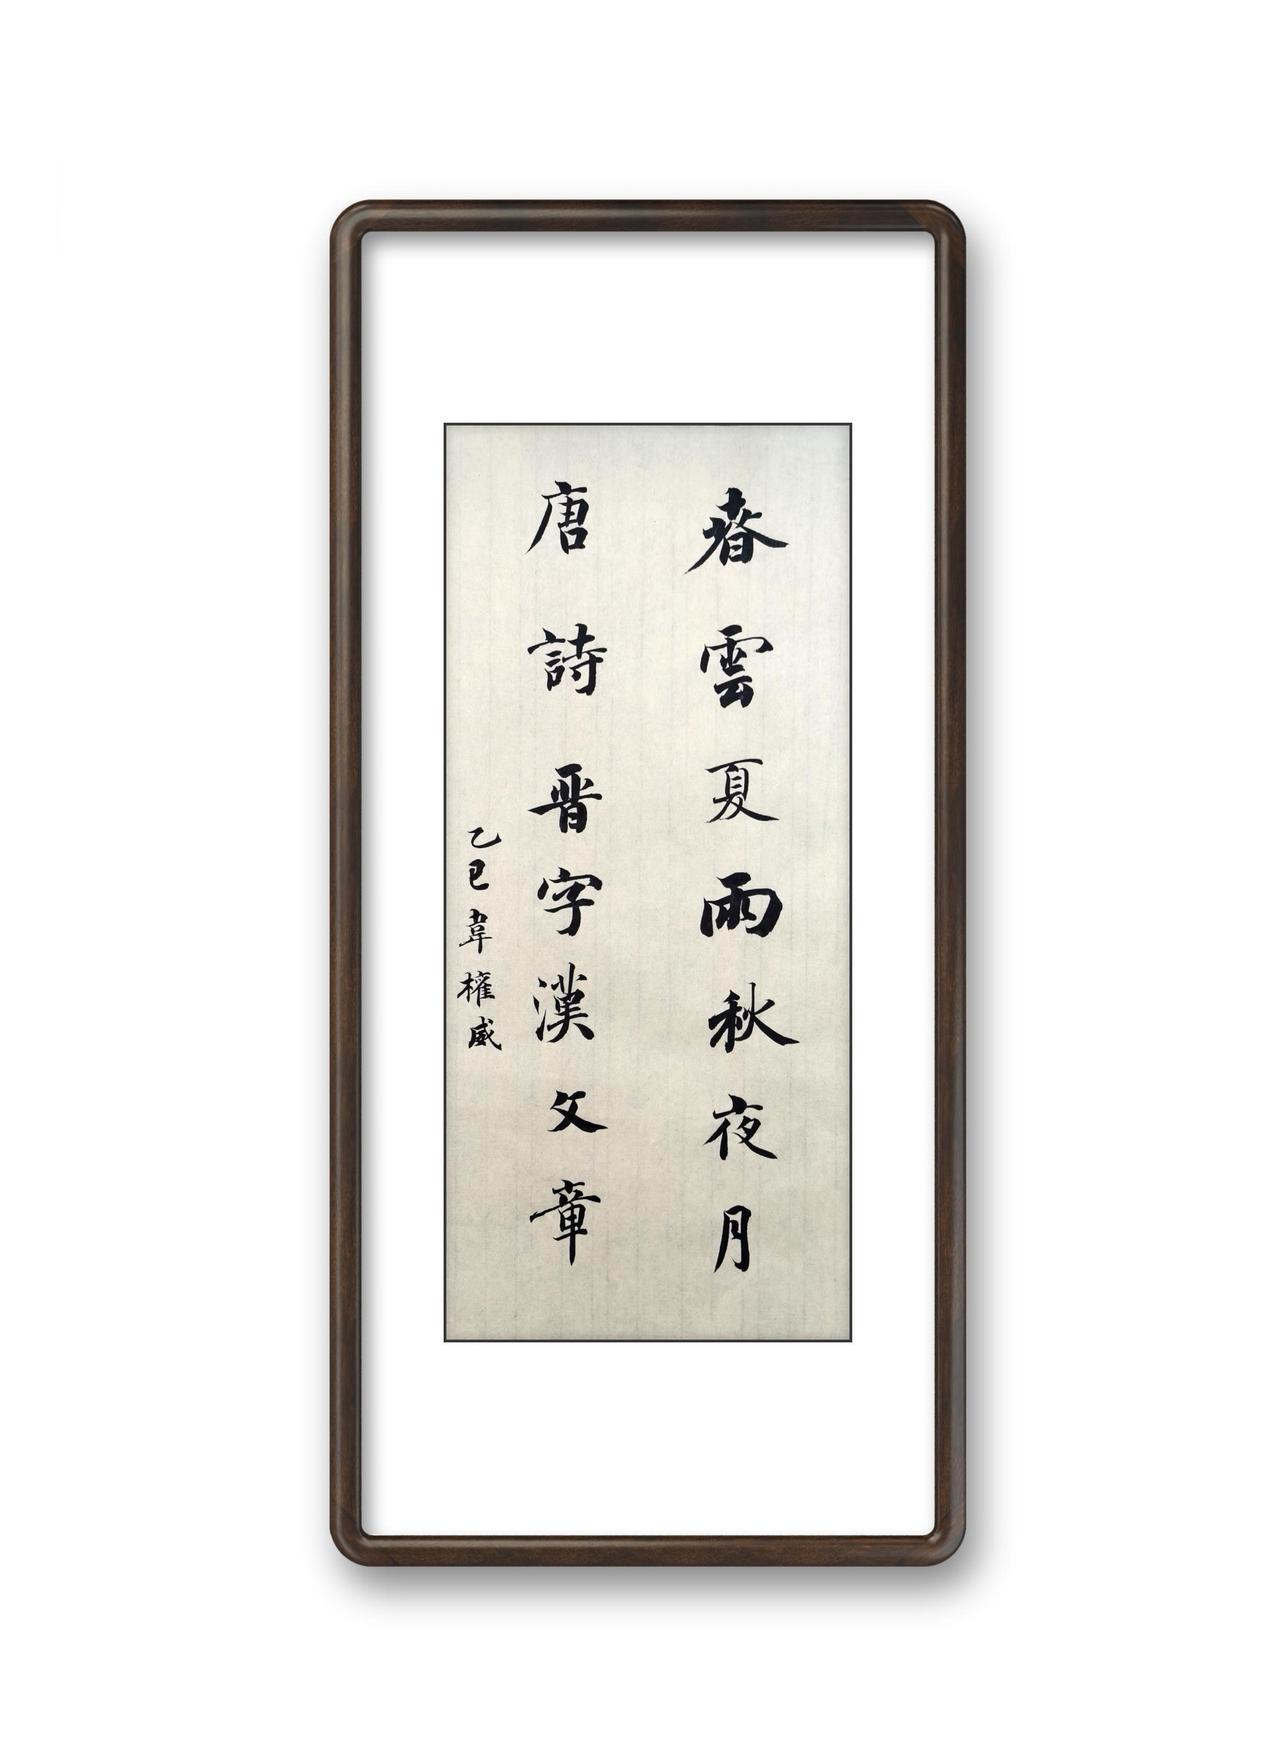 春雲夏雨秋夜月
唐詩晋字漢文章
乙巳韋權威